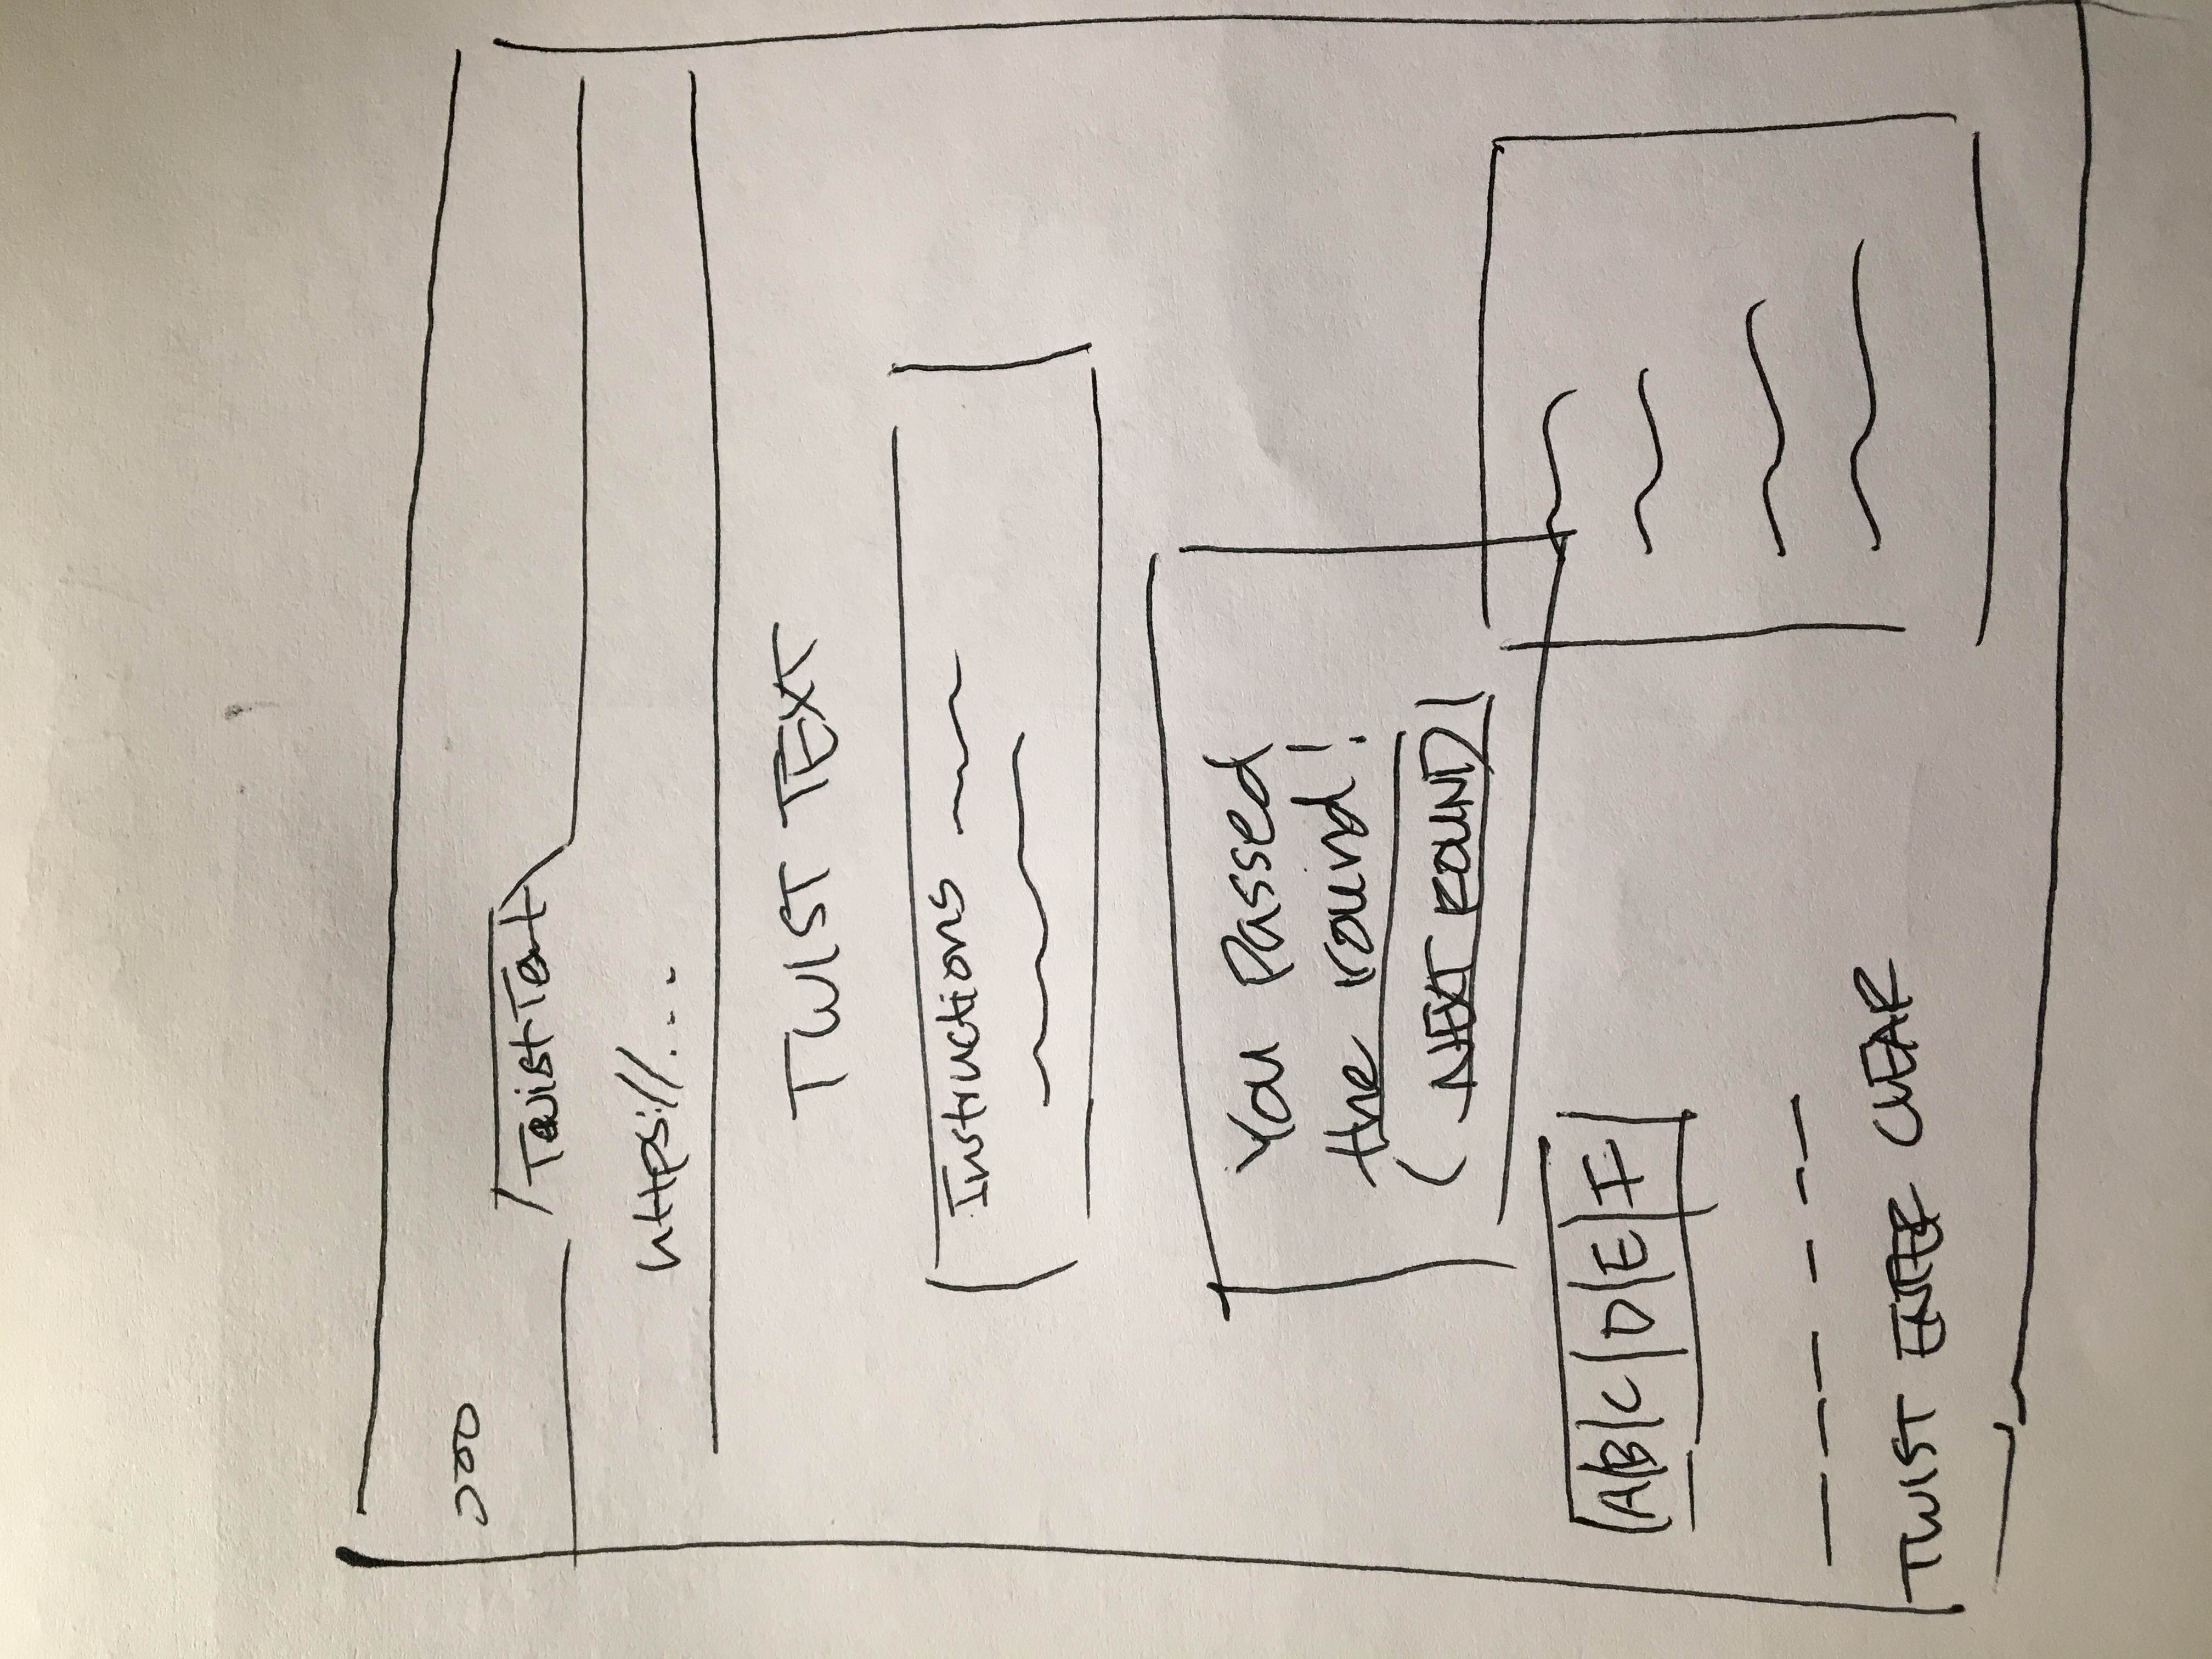 Twist Text
https://...
TWIST TEXT
Instructions
You Passed
the round!
NEXT ROUND
A B C D E F
TWIST ENTER CLEAR